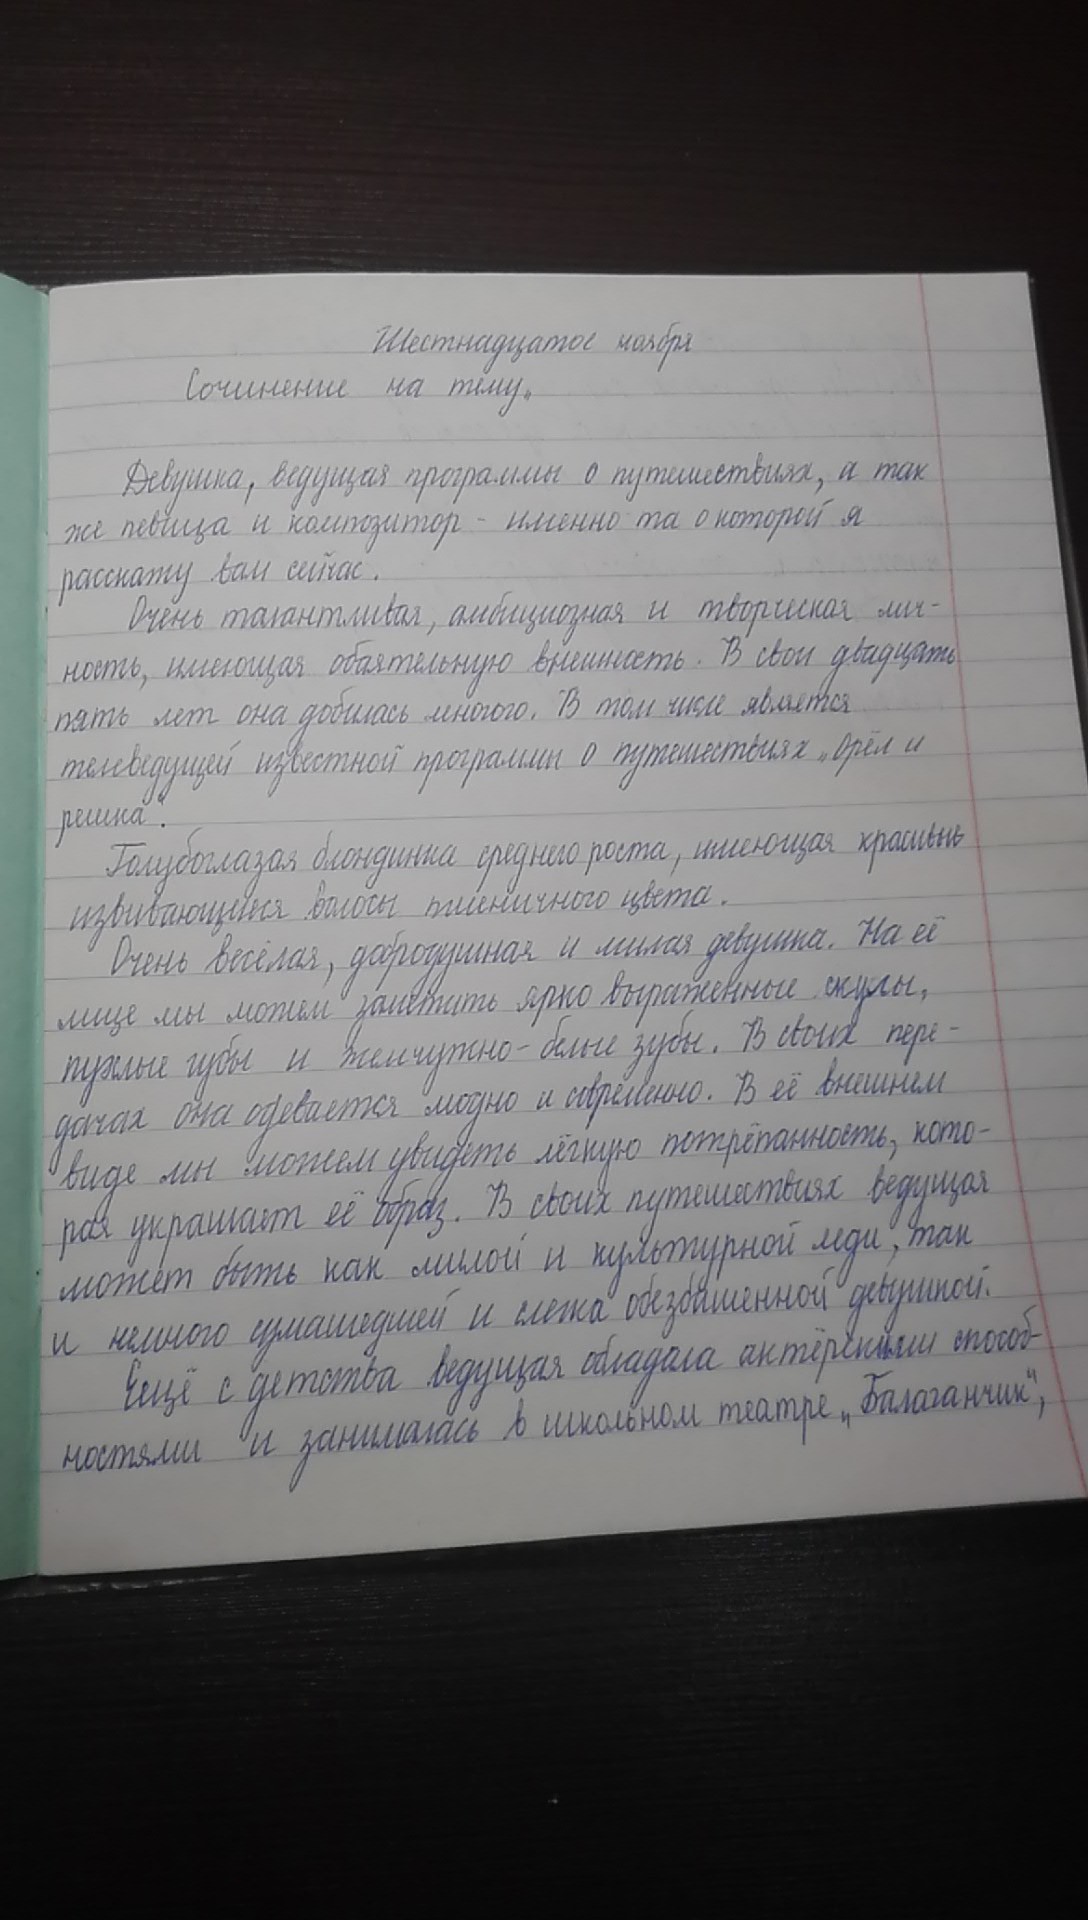 Шестнадцатое ноября
Сочинение на тему„
Девушка, ведущая программы о путешествиях, а так
же певица и композитор - именно та о которой я
расскажу вам сейчас.
Очень талантливая, амбициозная и творческая лич-
ность, имеющая обаятельную внешность. В свои двадцать
пять лет она добилась многого. В том числе является
телеведущей известной программы о путешествиях „Орёл и
решка".
Голубоглазая блондинка среднего роста, имеющая красивые
извивающиеся волосы пшеничного цвета.
Очень весёлая, добродушная и милая девушка. На её
лице мы можем заметить ярко выраженные скулы,
пухлые губы и жемчужно-белые зубы. В своих пере-
дачах она одевается модно и современно. В её внешнем
виде мы можем увидеть лёгкую потрёпанность, кото-
рая украшает её образ. В своих путешествиях ведущая
может быть как милой и культурной леди, так
и немного сумашедшей и слегка обезбашенной девушкой.
Ещё с детства ведущая обладала актёрскими способ-
ностями и занималась в школьном театре „Балаганчик",